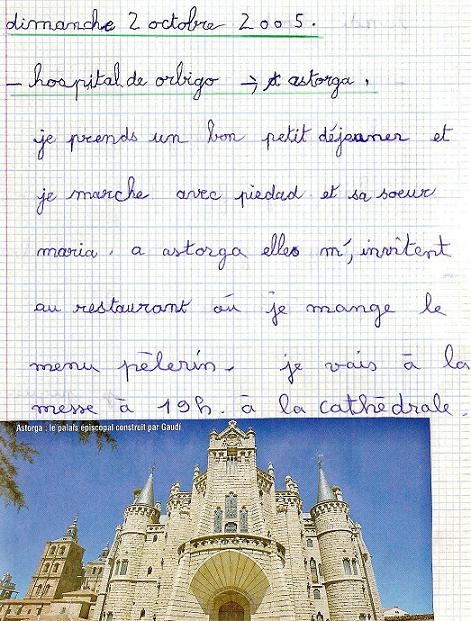 dimanche 2 octobre 2005.
- hospital de orbigo → astorga.
je prends un bon petit déjeuner et
je marche avec piedad et sa soeur
maria. a astorga elles m', invitent
au restaurant où je mange le
menu pèlerin. je vais à la
messe à 19h. à la cathédrale.
Astorga : le palais épiscopal construit par Gaudi